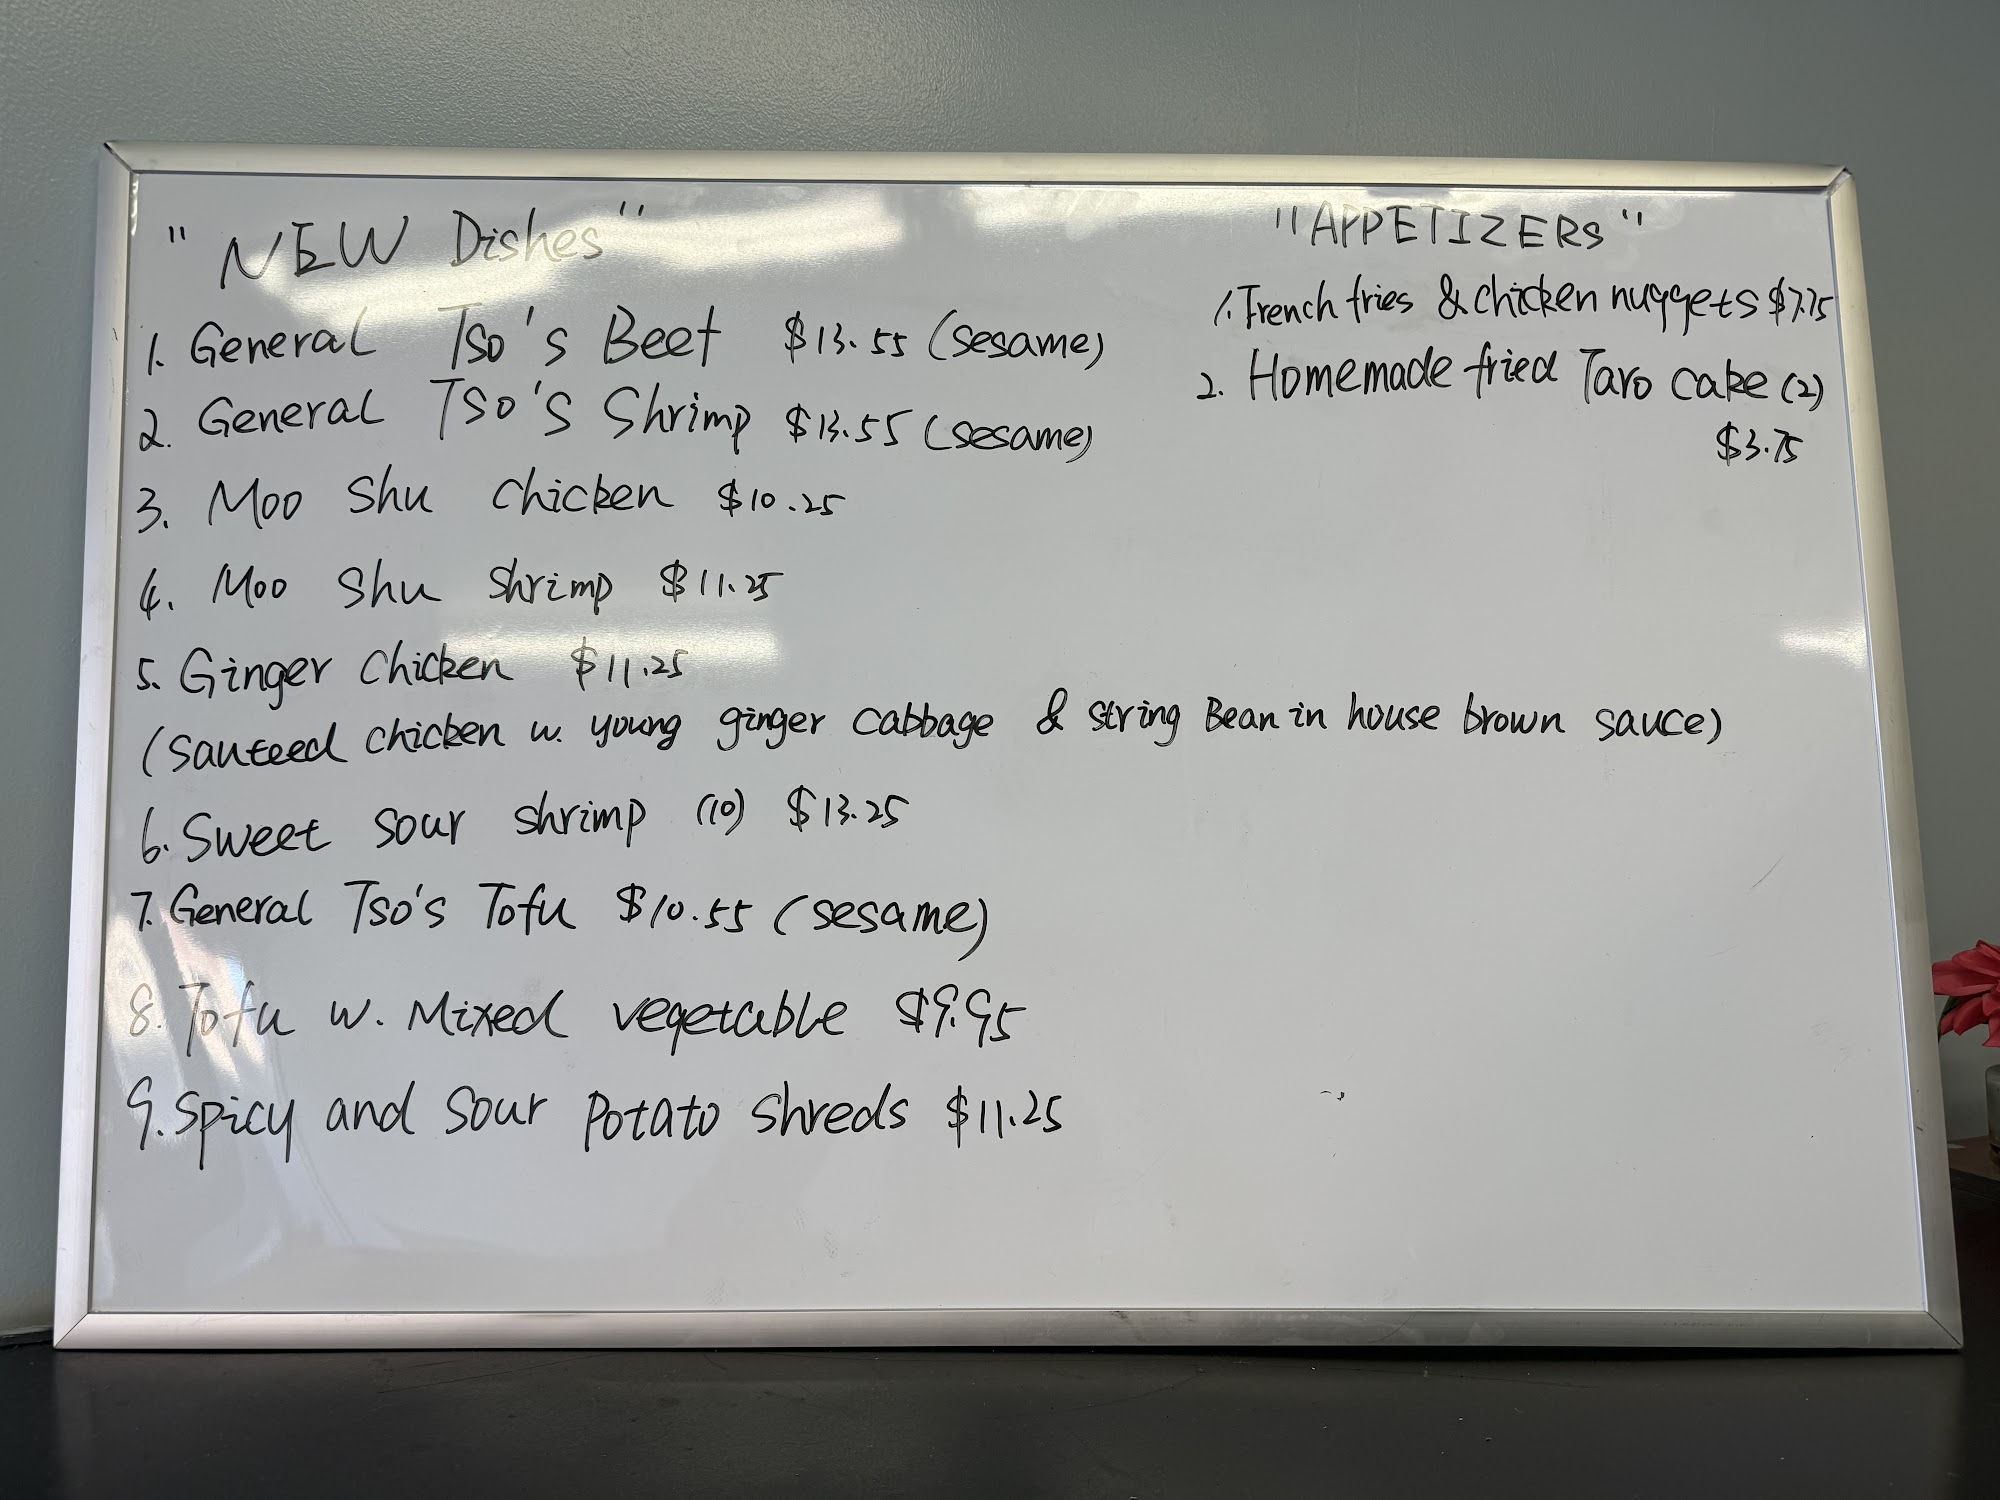 "NEW Dishes"
1. General Tso's Beef $13.55 (sesame)
2. General Tso's Shrimp $13.55 (sesame)
3. Moo Shu Chicken $10.25
4. Moo Shu Shrimp $11.25
5. Ginger Chicken $11.25
(Sauteed chicken w. young ginger cabbage & string Bean in house brown sauce)
6. Sweet Sour Shrimp (10) $13.25
7. General Tso's Tofu $10.55 (sesame)
8. Tofu w. Mixed vegetable $9.95
9. Spicy and Sour Potato Shreds $11.25
"APPETIZERS"
1. French fries & chicken nuggets $7.75
2. Homemade fried Taro Cake (2)
$3.75